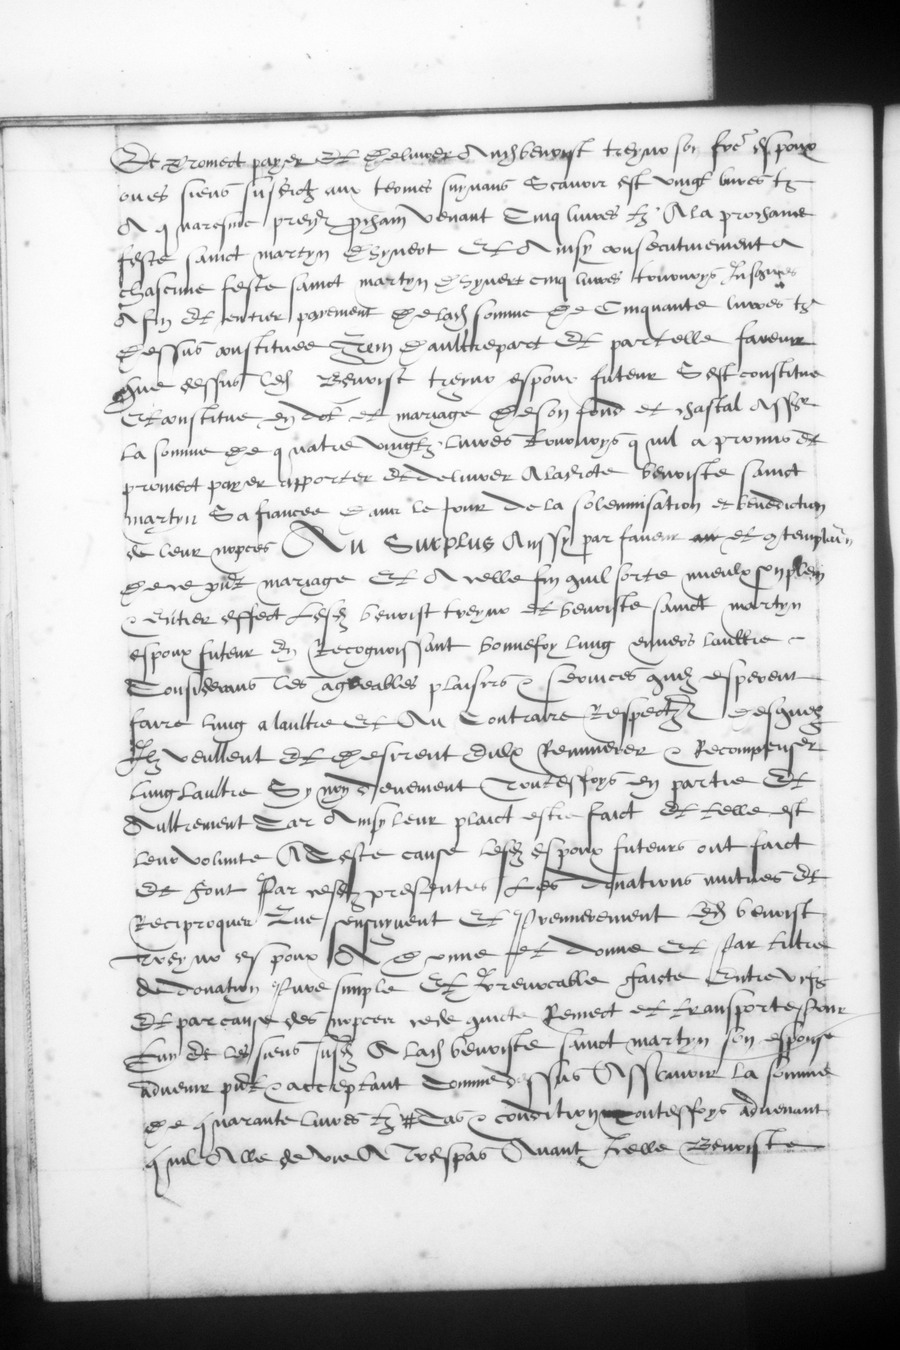 Et promect payer et delivrer Audi benoist treyno son fut espoux
ou es siens susditz aux termes suyvans Scavoir est vingt livres tz
A quaresme prenant prochain venant Cinq livres tz A la prochaine
feste sainct martyn dhyvert Et Ainsy consecutivement a
chascune feste sainct martyn dhyvert cinq livres tournoys Jusques
A fin et entier payement de lad somme de Cinquante livres tz
dessus constituee Item daultrepart et par telle faveur
que dessus led Benoist treyno espoux futeur Sest constitue
Et constitue en dot et mariage de son fond et chastal Assr
la somme de quatre vingtz livres tournoys quil a promis et
promect payer apporter et delivrer A ladicte benoiste sainct
martyn Sa fiancee dans le Jour de la solennisation et benediction
de leur nopces Au Surplus Aussy par faveur et contemplaon
de ce pnt mariage Et A celle fin quil sorte mieulx son plein
& Entier effect Lesd benoist treyno et benoiste sainct martyn
espoux futeur En Recognoissant bonnefoy lung envers laultre
Considerans les agreables plaisirs & services quilz esperent
faire lung a laultre Et Au Contraire Respectz desquelz
Ilz veullent et desirent Eulx Remunerer & Recompenser
lung Laultre Sy non devement Touteffoys en partie Et
Aultrement Car Ainsy leur plaict estre faict Et telle est
leur volunte A Ceste cause lesd espoux futeurs ont faict
Et font Par cesd presentes Les donations mutues et
Reciproques Que sensuyvent Et Premierement led benoist
Treyno espoux A donne et donne Et Par tiltre
de donation Pure simple Et Irrevocable faicte Entre vifz
Et par cause des nopces cede quicte Remect et transporte pour
luy et les siens susd A lad benoiste sainct martyn son espouse
advenir pnt & acceptant Comme dessus Asscavoir la somme
de quarante livres tz # Cas & condition touteffoys advenant
quil Alle de vie A Trespas Avant Icelle Benoiste